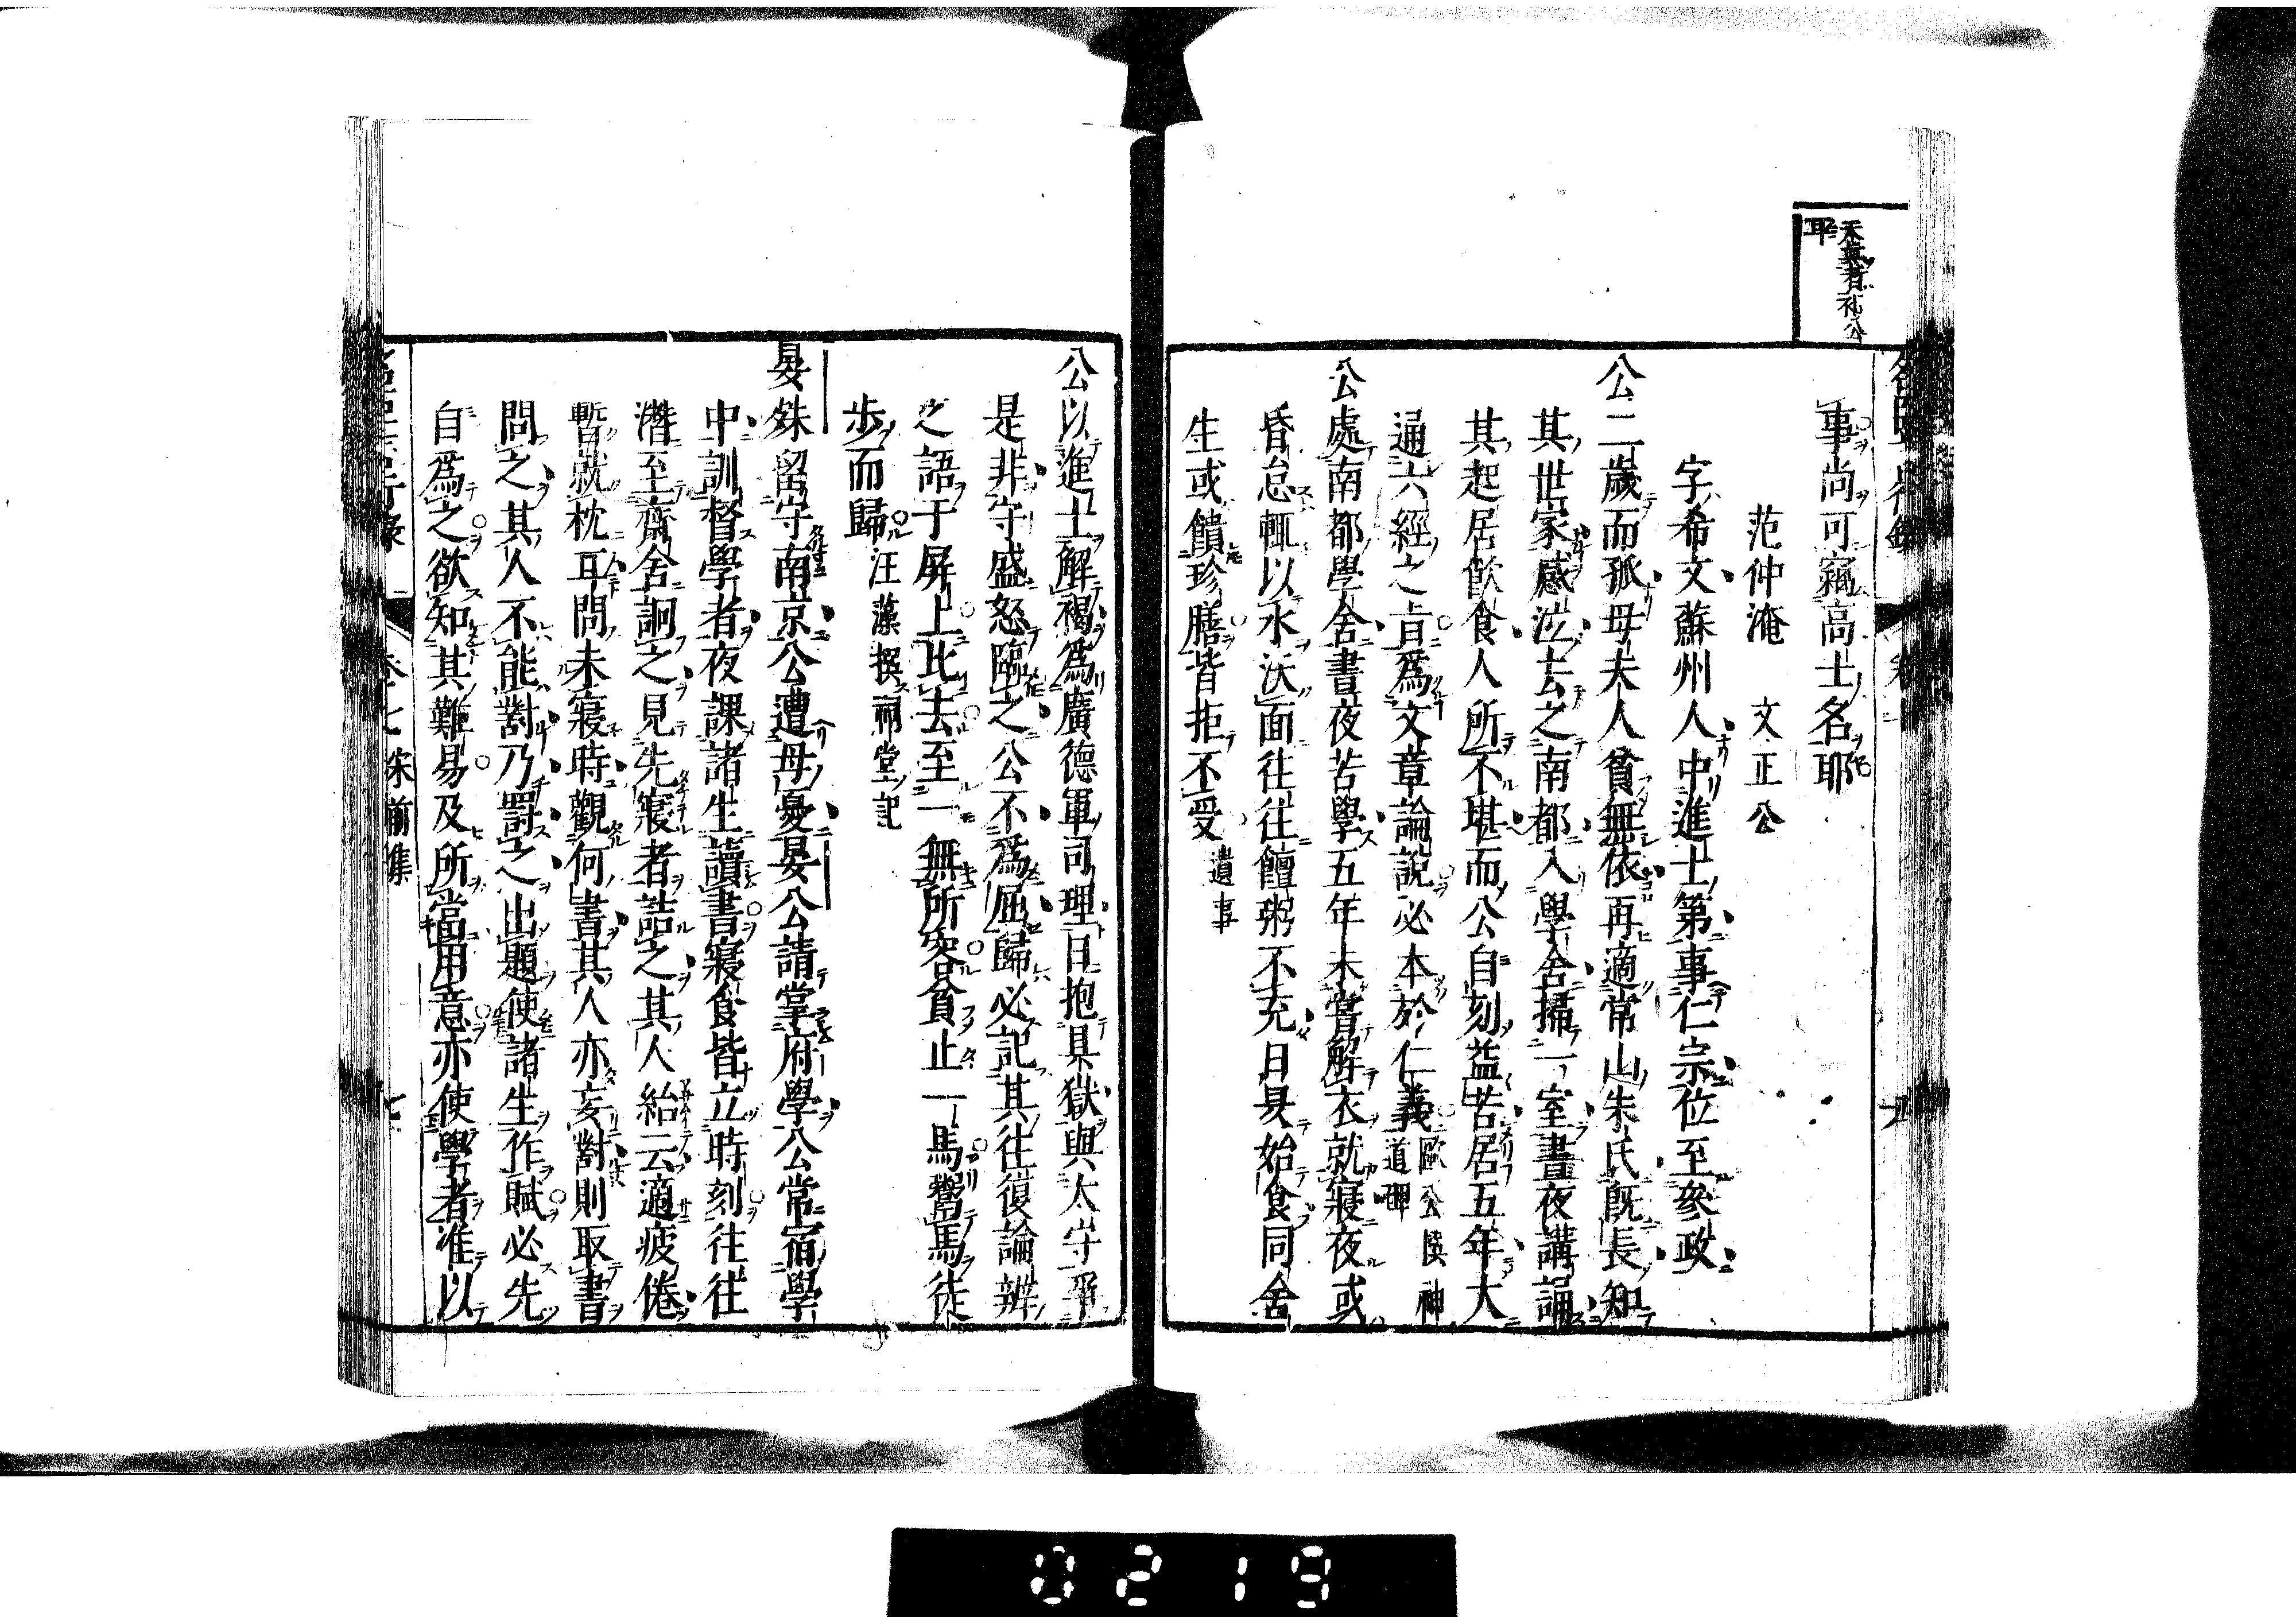 天真者礼公
耳
事尚可竊高士名耶
范仲淹 文正公
字希文蘇州人中進士第事仁宗位至參政
公二歲而孤母夫人貧無依再適常山朱氏既長知
其世家感泣去之南都入學舍掃一室晝夜講誦
其起居飲食人所不堪而公自刻益苦居五年大
通六經之旨爲文章論說必本於仁義歐公撰神
道碑
公處南都學舍晝夜苦學五年未嘗解衣就寢夜或
昏怠輒以水沃面往往饘粥不充日昃始食同舍
生或饋珍膳皆拒不受 遺事
公以進士解褐爲廣德軍司理日抱具獄與太守爭
是非守盛怒臨之公不爲屈歸必記其往復論辨
之語于屏上比去至一無所容貧止一馬鬻馬徒
步而歸 汪藻撰祠堂記
晏殊留守南京公遭母憂晏公請掌府學公常宿學
中訓督學者夜課諸生讀書寢食皆立時刻往往
潛至齋舍詗之見先寢者詰之其人紿云適疲倦
暫就枕耳問未寢時觀何書其人亦妄對則取書
問之其人不能對乃罰之出題使諸生作賦必先
自爲之欲知其難易及所當用意亦使學者准以
卷七 宋前集
0219